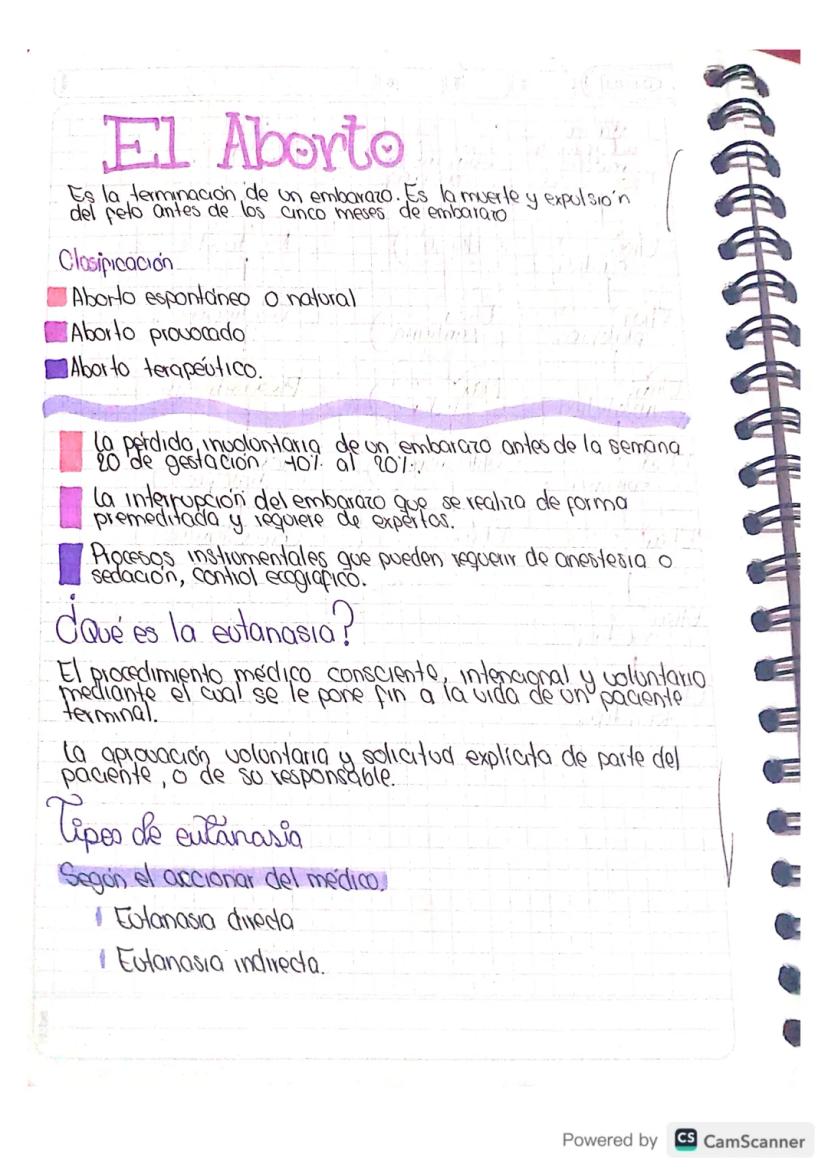 El Aborto
Es la terminación de un embarazo. Es la muerte y expulsión
del feto antes de los cinco meses de embarazo
Clasificación
Aborto espontáneo o natural
Aborto provocado
Aborto terapéutico.
La pérdida involontaria de un embarazo antes de la semana
20 de gestación 10% al 20%.
La interrupción del embarazo que se realiza de forma
premeditada y requiere de expertos.
Procesos instrumentales que pueden requerir de anestesia o
sedación, control ecográfico.
¿Qué es la eutanasia?
El procedimiento médico consciente, intencional y voluntario
mediante el cual se le pone fin a la vida de un paciente
terminal.
La aprovación voluntaria y solicitud explícita de parte del
paciente, o de su responsable.
Tipos de eutanasia
Según el accionar del médico.
Eutanasia directa
Eutanasia indirecta.
Powered by CS CamScanner